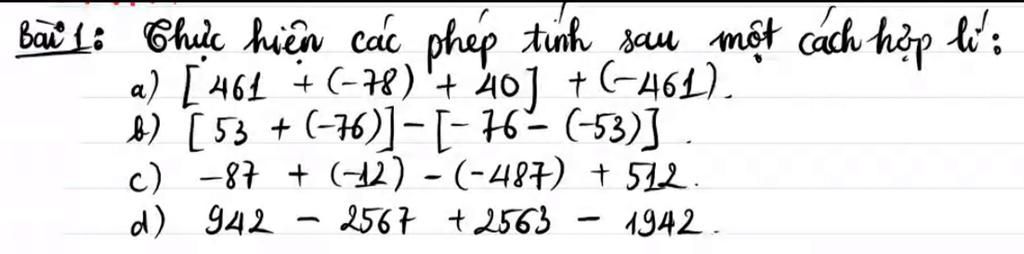 Bài 1: Thực hiện các phép tính sau một cách hợp lí:
a) [461 + (-78) + 40] + (-461).
b) [53 + (-76)] - [-76 - (-53)].
c) -87 + (-12) - (-487) + 512.
d) 942 - 2567 + 2563 - 1942.